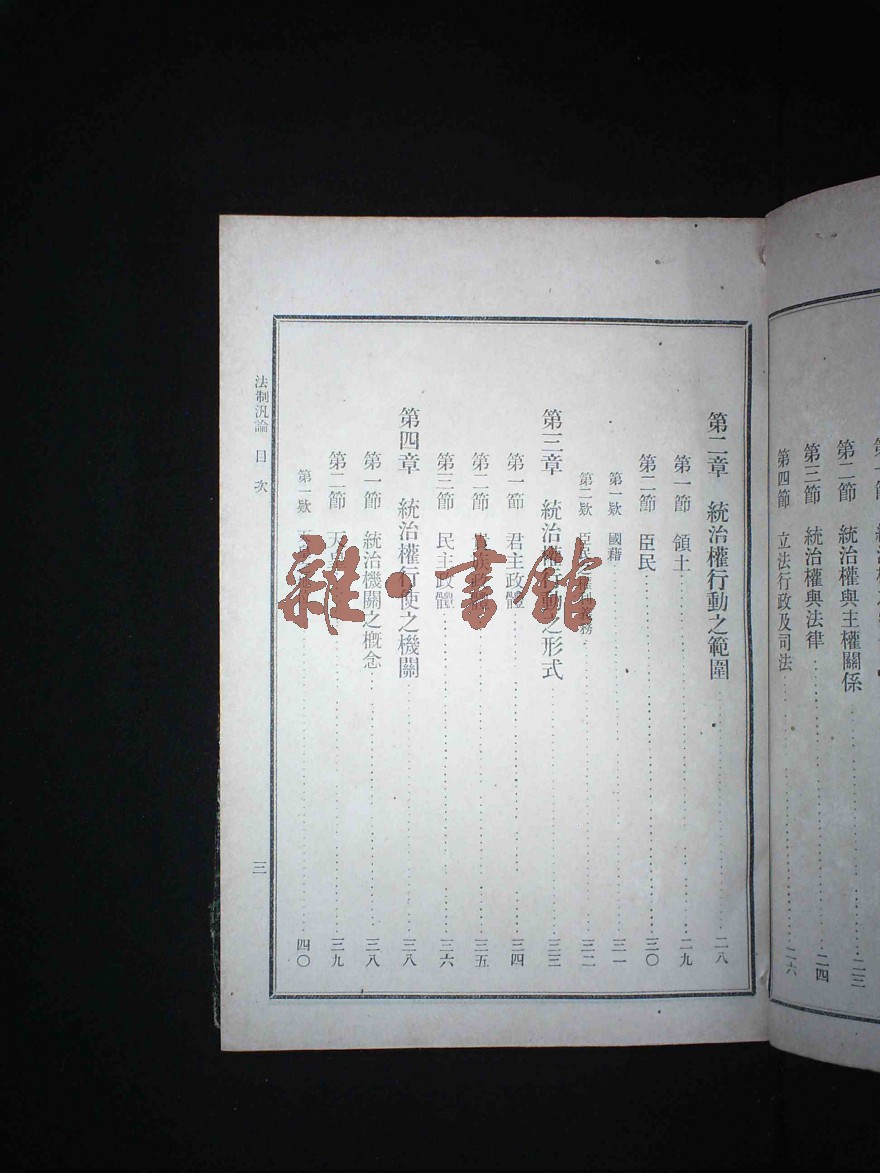 第二節 統治權與主權關係 二三
第三節 統治權與法律 二四
第四節 立法行政及司法 二六
第二章 統治權行動之範圍 二八
第一節 領土 二九
第二節 臣民 三〇
第一欵 國籍 三一
第二欵 臣民 義務 三二
第三章 統治權行動之形式 三三
第一節 君主政體 三四
第二節 三五
第三節 民主政體 三六
第四章 統治權行使之機關 三八
第一節 統治機關之概念 三八
第二節 天 三九
第一欵 四〇
法制汎論 目次 三
雜·書館